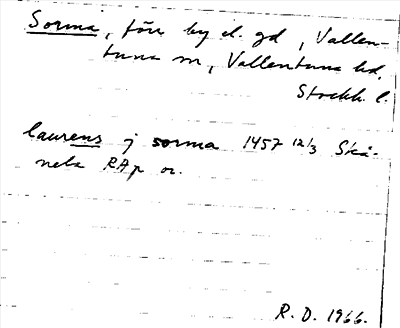 Sorma, förr by el. gd, Vallen-
tuna sn, Vallentuna hd,
Stockh. l.
laurens j sorma 1457 12/3 Skå-
nela RAp or.
R. D. 1966.